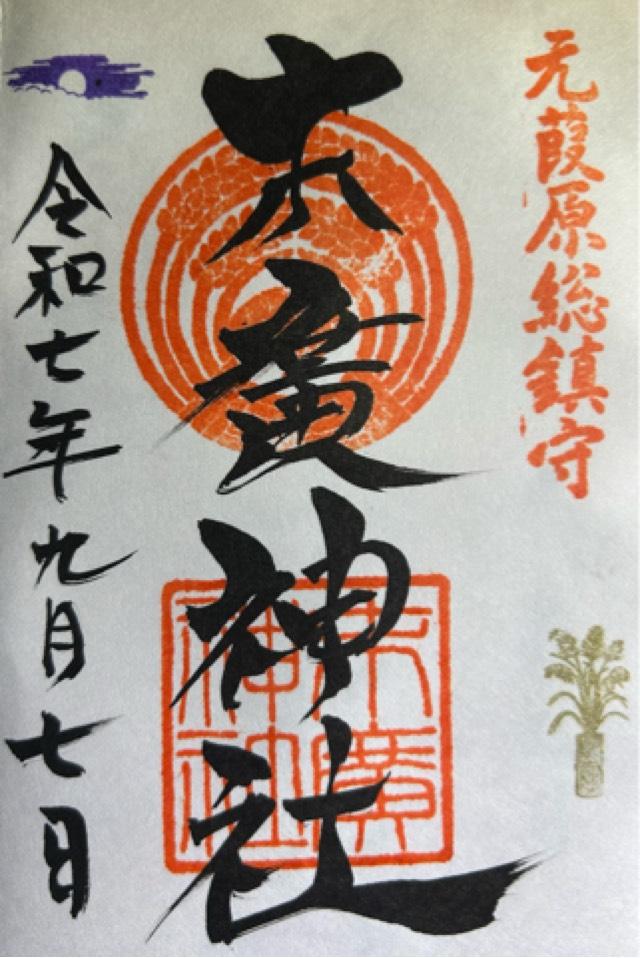 元葭原総鎮守
末廣神社
末廣
神社
令和七年九月七日